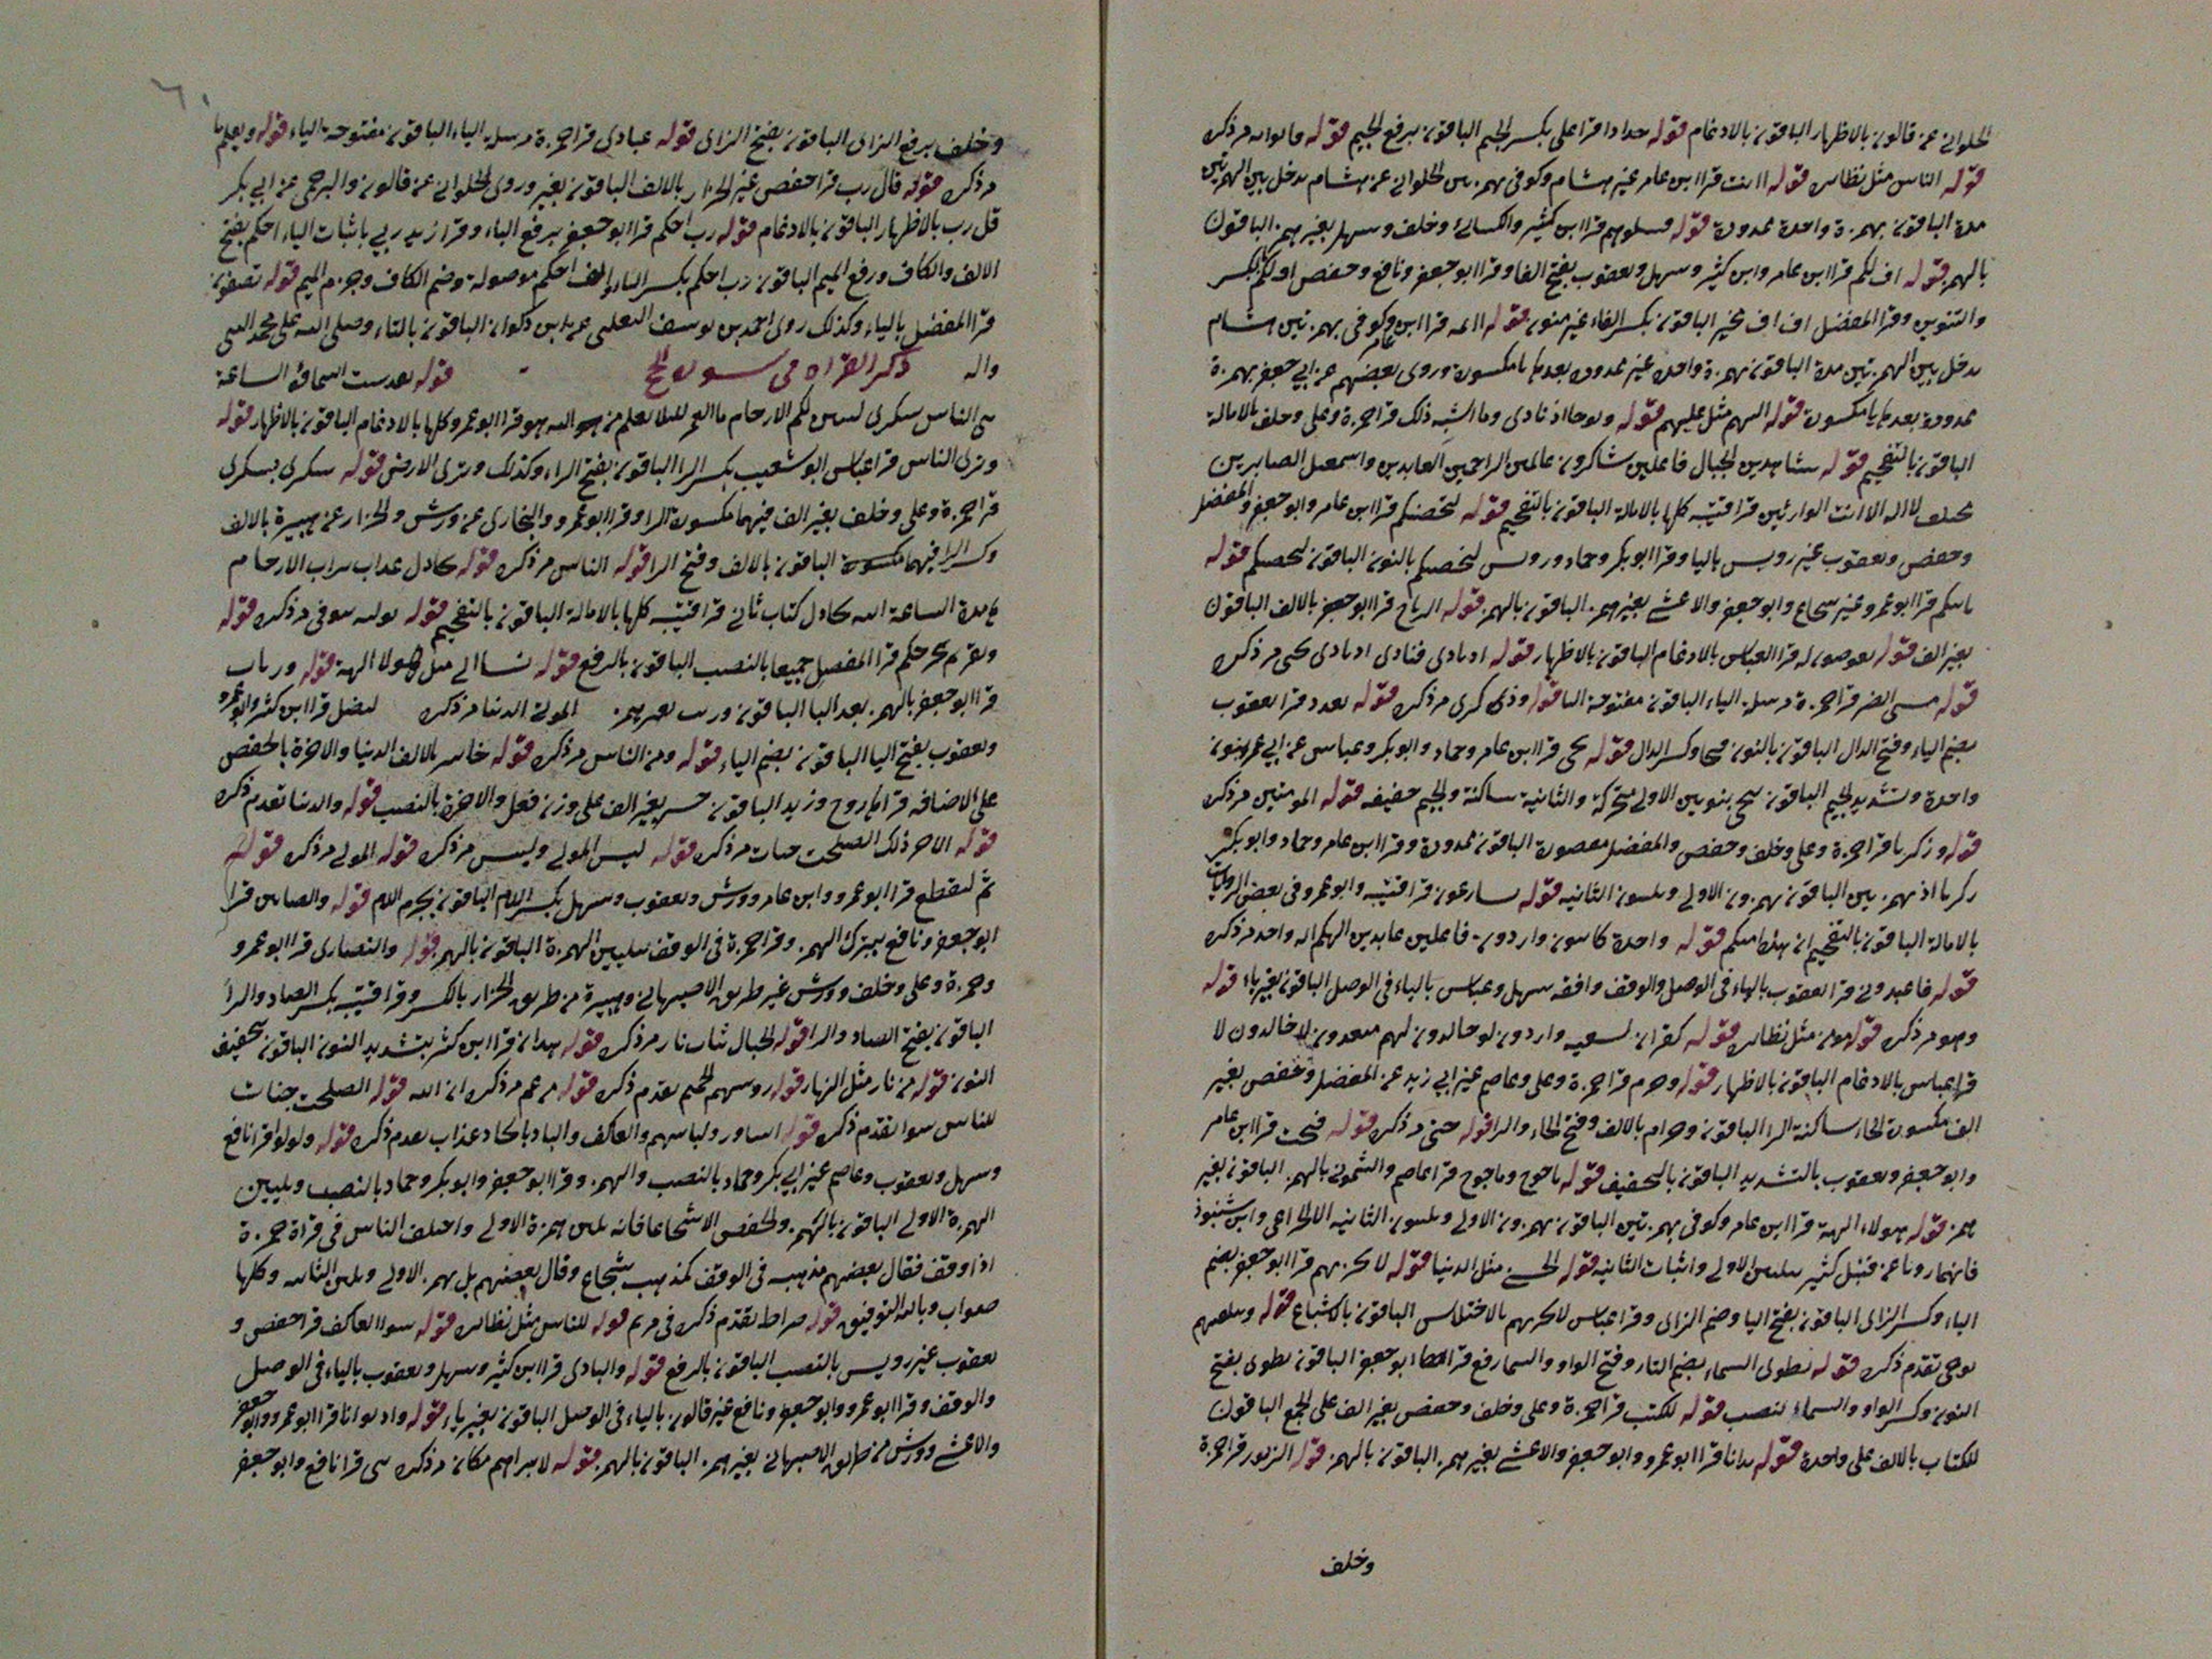 الحلوانى عن قالون بالاظهار الباقون بالادغام قوله جدادا قرا على بكسر الجيم الباقون برفع الجيم قوله قالوا انه مر ذكره
قوله الناس مثل نظايره قوله اانت قرا ابن عامر غير هشام وكوفى بهمزتين الحلوانى عن هشام يدخل بين الهمزتين
مدة الباقون بهمزة واحدة ممدودة قوله فسلوهم قرا ابن كثير والكسائى وخلف وسهل بغير همز الباقون
بالهمز قوله اف لكم قرا ابن عامر وابن كثير وسهل ويعقوب بفتح الفا وقرا ابو جعفر ونافع وحفص اف لكم بكسر
والتنوين وقرا المفضل اف اف مخير الباقون بكسر الفاء غير منون قوله اائمه قرا ابن عامر وكوفى بهمزتين هشام
يدخل بين الهمزتين مدة الباقون بهمزة واحدة غير ممدودة بعدها يا مكسورة وروى بعضهم عن ابى جعفر بهمزة
ممدودة بعدها يا مكسورة قوله اليهم مثل عليهم قوله ونوحا اذ نادى وما اشبه ذلك قرا حمزة وعلى وخلف بالامالة
الباقون بالتفخيم قوله شاهدين الجبال فاعلين شاكرون عالمين الراحمين العابدين واسمعيل الصابرين
لا اله الا انت الوارثين قرا قتيبه كلها بالامالة الباقون بالتفخيم قوله لتحصنكم قرا ابن عامر وابو جعفر والمفضل
وحفص ويعقوب غير رويس باليا وقرا ابو بكر وحماد ورويس لنحصنكم بالنون الباقون لتحصنكم قوله
باسكم قرا ابو عمرو غير شجاع وابو جعفر والاعشى بغير همز الباقون بالهمز قوله الرياح قرا ابو جعفر بالالف الباقون
بغير الف قوله يغوصون له قرا العباس بالادغام الباقون بالاظهار قوله اذ نادى فنادى اذ نادى يحيى مر ذكره
قوله مسنى الضر قرا حمزة مرسلة الياء الباقون مفتوحة اليا قوله وذكرى مر ذكره قوله نقدر قرا يعقوب
بضم الياء وفتح الدال الباقون بالنون وكسر الدال قوله نجى قرا ابن عامر وحماد وابو بكر وعباس عن ابى عمرو بنون
واحدة وتشديد الجيم الباقون ننجى بنونين الاولى متحركة والثانية ساكنة والجيم خفيفه قوله المومنين مر ذكره
قوله وزكريا قرا حمزة وعلى وخلف وحفص والمفضل مقصورة الباقون ممدودة وقرا ابن عامر وحماد وابو بكر
زكريا اذ بهمزتين الباقون بهمزون الاولى ويلينون الثانيه قوله يسارعون قرا قتيبه وابو عمرو فى بعض الروايات
بالامالة الباقون بالتفخيم ان هذه امتكم قوله واحدة كاتبون واردون فاعلين عابدين الهكم اله واحد مر ذكره
قوله فاعبدونى قرا يعقوب بالياء فى الوصل والوقف وافقه سهل وعباس بالياء فى الوصل الباقون بغير ياء قوله
وهو مر ذكره قوله مومن مثل نظايره قوله كفران لسعيه واردون لو خالدون لهم مبعدون لا خالدون لا
قرا عباس بالادغام الباقون بالاظهار قوله وحرم قرا حمزة وعلى وعاصم غير ابى زيد عن المفضل وحفص بغير
الف مكسورة الحاء ساكنة الرا الباقون وحرام بالالف وفتح الحاء والرا قوله حتى مر ذكره قوله فتحت قرا ابن عامر
وابو جعفر ويعقوب بالتشديد الباقون بالتخفيف قوله ياجوج وماجوج قرا عاصم والشمونى بالهمز الباقون بغير
همز قوله هولاء الهة قرا ابن عامر وكوفى بهمزتين الباقون بهمزون الاولى ويلينون الثانيه الا الخزاعى وابن شنبوذ
فانهما رويا عن قنبل كثير بتليين الاولى واثبات الثانيه قوله الحسنى مثل الدنيا قوله لا يحزنهم قرا ابو جعفر بضم
الياء وكسر الزاى الباقون بفتح اليا وضم الزاى وقرا عباس لا يحزنهم بالاختلاس الباقون بالاشباع قوله وتتلقيهم
يوحى تقدم ذكره قوله تطوى السماء بضم التاء وفتح الواو والسما رفع قرا ابو جعفر الباقون نطوى بفتح
النون وكسر الواو والسماء نصب قوله للكتب قرا حمزة وعلى وخلف وحفص بغير الف على الجمع الباقون
للكتاب بالالف على واحدة قوله بدانا قرا ابو عمرو وابو جعفر والاعشى بغير همز الباقون بالهمز قوله الزبور قرا حمزة
وخلف
وخلف برفع الزاى الباقون بفتح الزاى قوله عبادى قرا حمزة مرسلة الياء الباقون مفتوحة الياء قوله ويعلم ما
مر ذكره قوله قال رب قرا حفص غير الخزاز بالالف الباقون بغير وروى الحلوانى عن قالون والبرجمى عن ابى بكر
قل رب بالاظهار الباقون بالادغام قوله رب احكم قرا ابو جعفر برفع الباء وقرا زيد ربى باثبات الياء احكم بفتح
الالف والكاف ورفع الميم الباقون رب احكم بكسر الباء الف احكم موصولة وضم الكاف وجزم الميم قوله تصفون
قرا المفضل بالياء وكذلك روى احمد بن يوسف التغلبى عن ابن ذكوان الباقون بالتاء وصلى الله على محمد النبى
واله ذكر القراه فى سورة الحج قوله الساعة
ترى الناس سكرى لنبين لكم الارحام ما العمر لكيلا يعلم من الله هو قرا ابو عمرو كلها بالادغام الباقون بالاظهار قوله
وترى الناس قرا عباس ابو شعيب بكسر الرا الباقون بفتح الراء وكذلك وترى الارض قوله سكرى بسكرى
قرا حمزة وعلى وخلف بغير الف فيهما مكسورة الرا وقرا ابو عمرو والبخارى عن ورش والخزاز عن هبيرة بالالف
وكسر الرا فيهما الباقون بالالف وفتح الرا قوله الناس مر ذكره قوله عذاب تراب الارحام
هامدة الساعة الله كتاب ثانى قرا قتيبه كلها بالامالة الباقون بالتفخيم قوله يتوفى مر ذكره قوله
ونقر نخرجكم قرا المفضل جميعا بالنصب الباقون بالرفع قوله نشا الى مثل هولا الهة قوله وربات
قرا ابو جعفر بالهمز بعد البا الباقون وربت بغير همز الموتى الدنيا مر ذكره ليضل قرا ابن كثير وابو عمرو
ويعقوب بفتح اليا الباقون بضم الياء قوله ومن الناس مر ذكره قوله خاسر بالالف الدنيا والاخرة بالخفض
على الاضافه قرا روح وزيد الباقون خسر بغير الف على وزن فعل والاخرة بالنصب قوله والدنيا تقدم ذكره
قوله الاخرة ذلك الصلحت جنات مر ذكره قوله لبيس المولى ولبيس مر ذكره قوله المولى مر ذكره قوله
ثم ليقطع قرا ابو عمرو وابن عامر وورش ويعقوب وسهل بكسر اللام الباقون بجزم اللام قوله والصابين قرا
ابو جعفر ونافع بترك الهمز وقرا حمزة فى الوقف بتليين الهمزة الباقون بالهمز قوله والنصارى قرا ابو عمرو
وحمزة وعلى وخلف وورش غير طريق الاصبهانى وهبيرة من طريق الخزاز بالكسر وقرا قتيبه بكسر الصاد والرا
الباقون بفتح الصاد والرا قوله الجبال ثياب نار مر ذكره قوله هذان قرا ابن كثير بتشديد النون الباقون بتخفيف
النون قوله من نار مثل النهار قوله روسهم الحميم تقدم ذكره قوله من غم مر ذكره ان الله قوله الصلحت جنات
للناس سوا تقدم ذكره قوله اساور ولباسهم والعاكف والباد بالحاد عذاب تقدم ذكره قوله ولولوا قرا نافع
وسهل ويعقوب وعاصم غير ابى بكر وحماد بالنصب والهمز وقرا ابو جعفر وابو بكر وحماد بالنصب وتليين
الهمزة الاولى الباقون بالهمز والخفض الا شجاعا فانه يلين همزة الاولى واختلف الناس فى قراة حمزة
اذا وقف فقال بعضهم مذهبه فى الوقف كمذهب شجاع وقال بعضهم بل يهمز الاولى ويلين الثانيه وكلها
صواب وبالله التوفيق قوله صراط تقدم ذكره فى مريم قوله للناس مثل نظايره قوله سوا العاكف قرا حفص و
يعقوب غير رويس بالنصب الباقون بالرفع قوله والبادى قرا ابن كثير وسهل ويعقوب بالياء فى الوصل
والوقف وقرا ابو عمرو وابو جعفر ونافع غير قالون بالياء فى الوصل الباقون بغير ياء قوله واذ بوانا قرا ابو عمرو وابو جعفر
والاعشى وورش من طريق الاصبهانى بغير همز الباقون بالهمز قوله لابراهيم مكان مر ذكره بيتى قرا نافع وابو جعفر